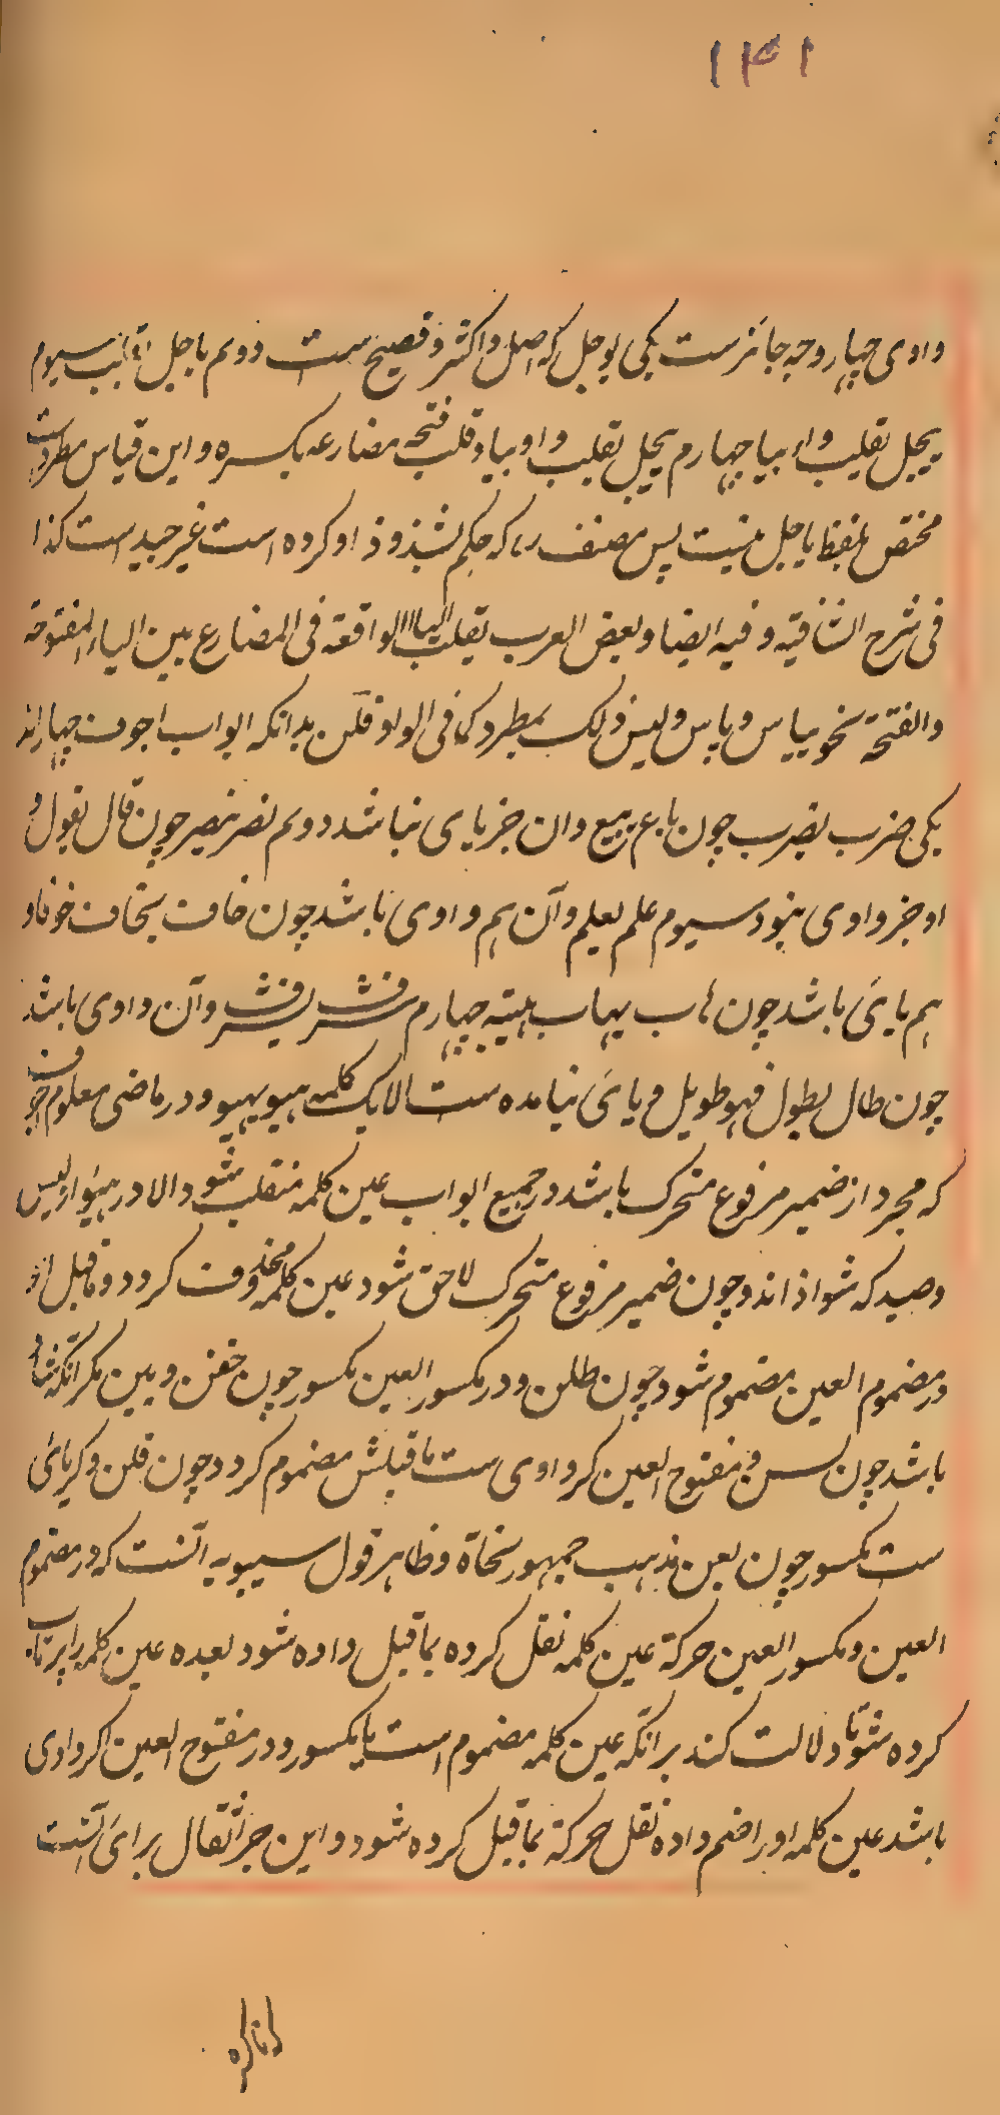 ۱۴۱
واوی چهار وجه جائز ست یکی یوجل که اصل و اکثر و فصیح ست دویم یاجل سیوم
ییجل بقلب واو بیا چهارم ییجل بقلب واو بیا و قلب فتحه مضارعه بکسره و این قیاس مطرد ست
مختص بلفظ یاجل نیست پس مصنف رہ که حکم بشذوذ او کرده است غیر جید است کذا
فی شرح الشافیه و فیه ایضا و بعض العرب یقلب الیاء الواقعة فی المضارع بین الیاء المفتوحة
والفتحة نحو یاس و لیس ذلک بمطرد کما فی الواو فلن بدانکه ابواب اجوف چهاراند
یکی ضرب یضرب چون باع یبیع و ان جز یای نباشد دویم نصر ینصر چون قال یقول و
او جز واوی نبود سیوم علم یعلم و آن هم واوی باشد چون خاف یخاف خوفا و
هم یائ باشد چون هاب یهاب هیبة چهارم شرف یشرف و آن واوی باشد
چون طال یطول فهو طویل و یائ نیامده ست الا یک کلمه هیو یهیو و در ماضی معلوم
که مجرد از ضمیر مرفوع متحرک باشد در جمیع ابواب عین کلمه منقلب شود والا در هیو و لیس
و صید که شواذ اند و چون ضمیر مرفوع متحرک لاحق شود عین کلمه محذوف کردد و ماقبل او
در مضموم العین مضموم شود چون طلن و در مکسور العین مکسور چون خفن و مکر آنکه
باشد چون لسن و مفتوح العین کر واوی ست ماقبلش مضموم کردد چون قلن و کر یائ
ست مکسور چون بعن مذهب جمهور نحاة و ظاهر قول سیبویه آنست که در مضموم
العین و مکسور العین حرکة عین کلمه نقل کرده بماقبل داده شود بعده عین کلمه را
کرده شود تا دلالت کند بر انکه عین کلمه مضموم است یا مکسور و در مفتوح العین اکر واوی
باشد عین کلمه او را ضم داده نقل حرکة بماقبل کرده شود و این جر اثقال برای آنست